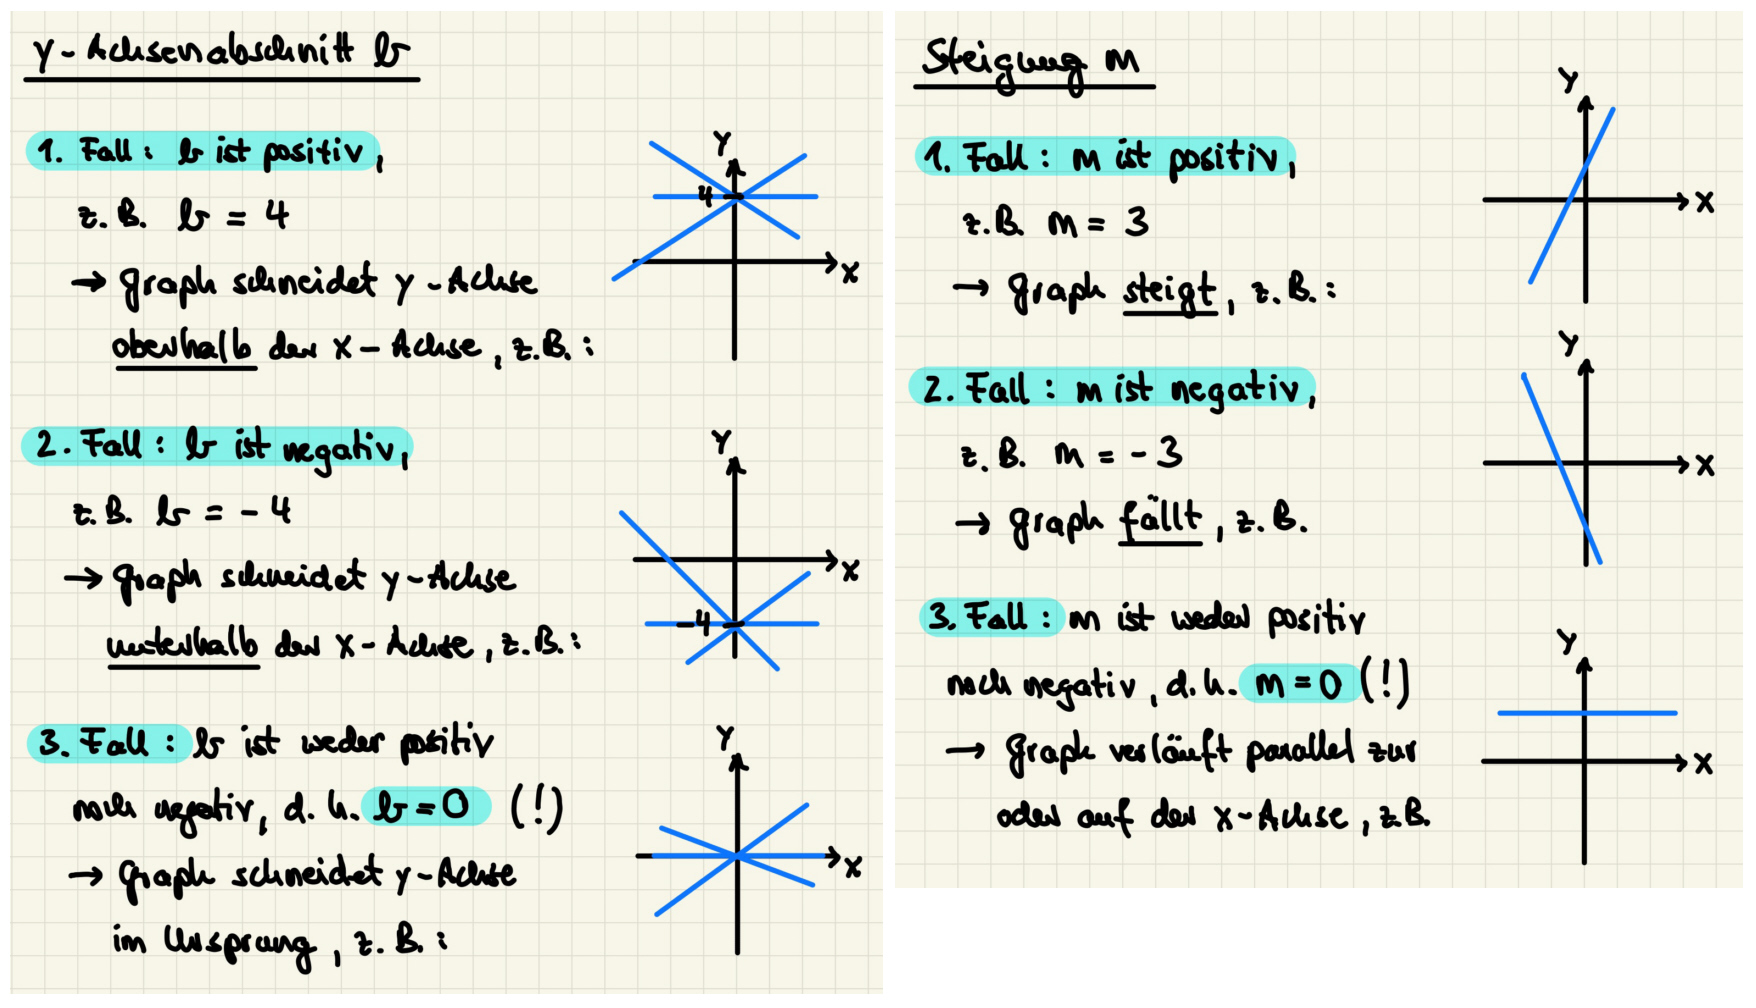 y-Achsenabschnitt b
1. Fall: b ist positiv,
z.B. b = 4
→ Graph schneidet y-Achse
oberhalb der x-Achse, z.B.:
y
4
x
2. Fall: b ist negativ,
z.B. b = -4
→ Graph schneidet y-Achse
unterhalb der x-Achse, z.B.:
y
x
-4
3. Fall: b ist weder positiv
noch negativ, d.h. b = 0 (!)
→ Graph schneidet y-Achse
im Ursprung, z.B.:
y
x
Steigung m
1. Fall: m ist positiv,
z.B. m = 3
→ Graph steigt, z.B.:
y
x
2. Fall: m ist negativ,
z.B. m = -3
→ Graph fällt, z.B.
y
x
3. Fall: m ist weder positiv
noch negativ, d.h. m = 0 (!)
→ Graph verläuft parallel zur
oder auf der x-Achse, z.B.
y
x